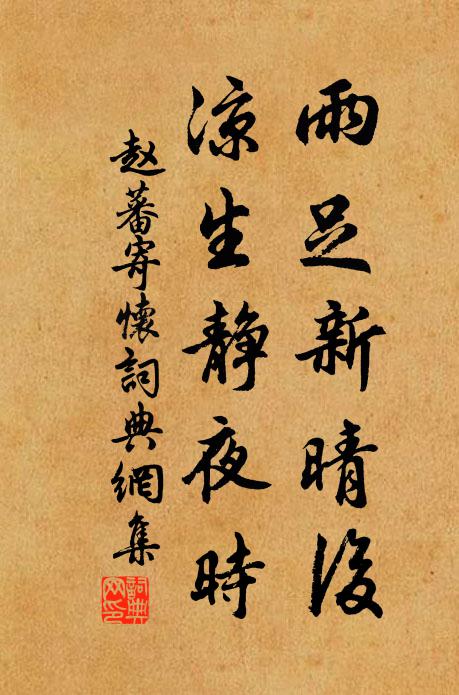 雨足新晴後
凉生静夜時
赵蕃寄懷詞典網集
詞典网印